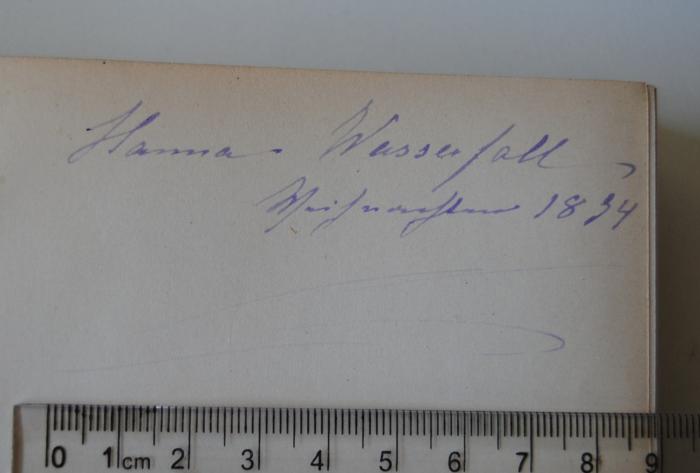 Hanna Wasserfall
Weihnachten 1894
0 1 cm 2 3 4 5 6 7 8 9